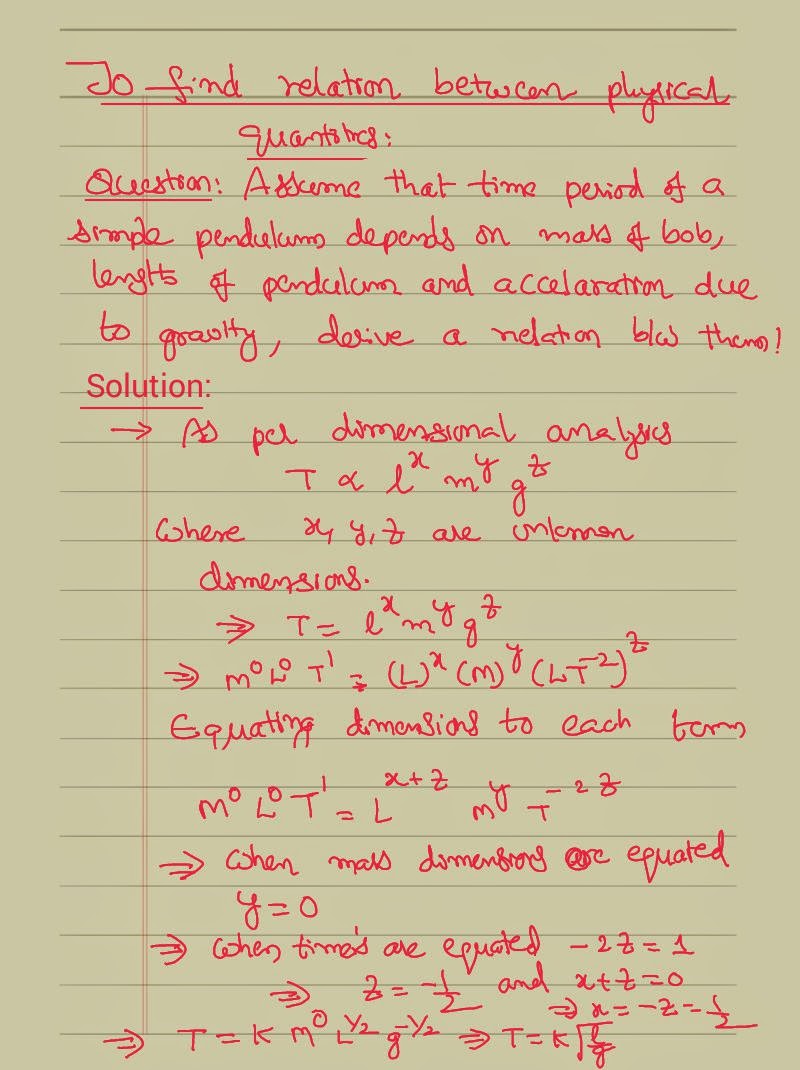 To find relation between physical
quantities:
Question: Assume that time period of a
simple pendulum depends on mass of bob,
length of pendulum and accelaration due
to gravity, derive a relation b/w them!
Solution:
→ As per dimensional analysis
T ∝ l^x m^y g^z
Where x, y, z are unknown
dimensions.
⇒ T = l^x m^y g^z
⇒ M^0 L^0 T^1 = (L)^x (M)^y (LT^-2)^z
Equating dimensions to each term
M^0 L^0 T^1 = L^x+z M^y T^-2z
⇒ When mass dimensions are equated
y = 0
⇒ When time's are equated -2z = 1
⇒ z = -1/2 and x+z=0
⇒ x = -z = 1/2
⇒ T = K M^0 L^1/2 g^-1/2 ⇒ T = K√(l/g)